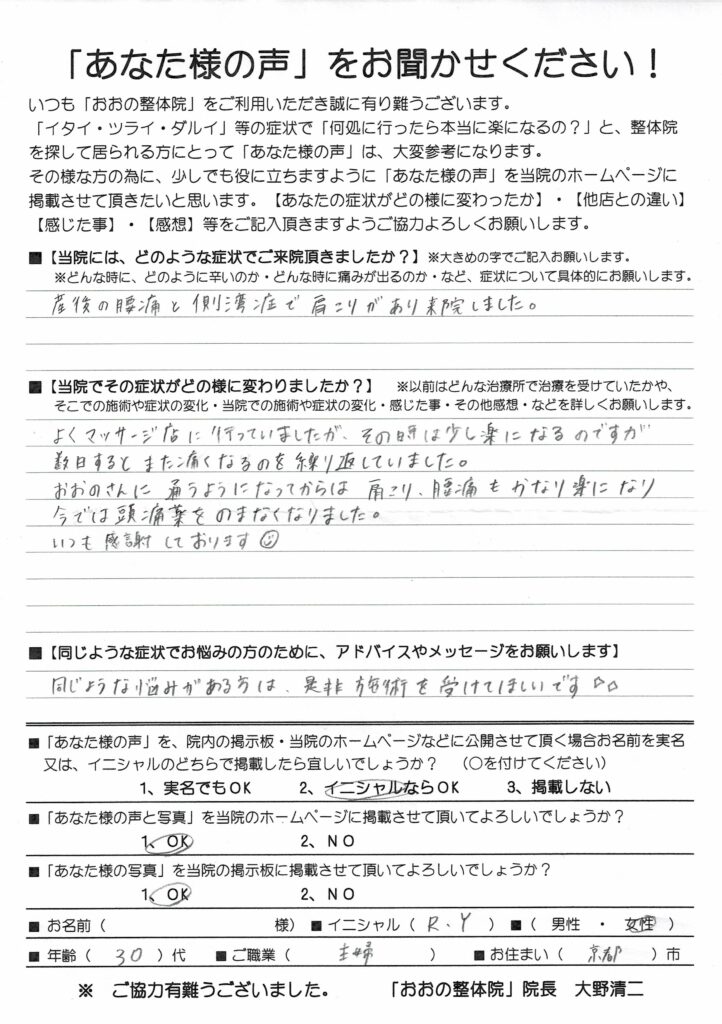 「あなた様の声」をお聞かせください！
いつも「おおの整体院」をご利用いただき誠に有り難うございます。
「イタイ・ツライ・ダルイ」等の症状で「何処に行ったら本当に楽になるの？」と、整体院
を探して居られる方にとって「あなた様の声」は、大変参考になります。
その様な方の為に、少しでも役に立ちますように「あなた様の声」を当院のホームページに
掲載させて頂きたいと思います。【あなたの症状がどの様に変わったか】・【他店との違い】
【感じた事】・【感想】等をご記入頂きますようご協力よろしくお願いします。
■【当院には、どのような症状でご来院頂きましたか？】※大きめの字でご記入お願いします。
※どんな時に、どのように辛いのか・どんな時に痛みが出るのか・など、症状について具体的にお願いします。
産後の腰痛と側湾症で肩こりがあり来院しました。
■【当院でその症状がどの様に変わりましたか？】 ※以前はどんな治療所で治療を受けていたかや、
そこでの施術や症状の変化・当院の施術や症状の変化・感じた事・その他感想・などを詳しくお願いします。
よくマッサージ店に行っていましたが、その時は少し楽になるのですが
数日するとまた痛くなるのを繰り返していました。
おおのさんに通うようになってからは肩こり、腰痛もかなり楽になり
今では頭痛薬をのまなくなりました。
いつも感謝しております☺
■【同じような症状でお悩みの方のために、アドバイスやメッセージをお願いします】
同じような悩みがある方は、是非施術を受けてほしいです☆☆
■「あなた様の声」を、院内の掲示板・当院のホームページなどに公開させて頂く場合お名前を実名
又は、イニシャルのどちらで掲載したら宜しいでしょうか？ （○を付けてください）
1、実名でもOK 2、イニシャルならOK 3、掲載しない
■「あなた様の声と写真」を当院のホームページに掲載させて頂いてよろしいでしょうか？
1、OK 2、NO
■「あなた様の写真」を当院の掲示板に掲載させて頂いてよろしいでしょうか？
1、OK 2、NO
■お名前（ 様）■イニシャル（ R.Y ）■（ 男性 ・ 女性 ）
■年齢（ 30 ）代 ■ご職業（ 主婦 ） ■お住まい（ 京都 ）市
※ ご協力有難うございました。 「おおの整体院」院長 大野清二